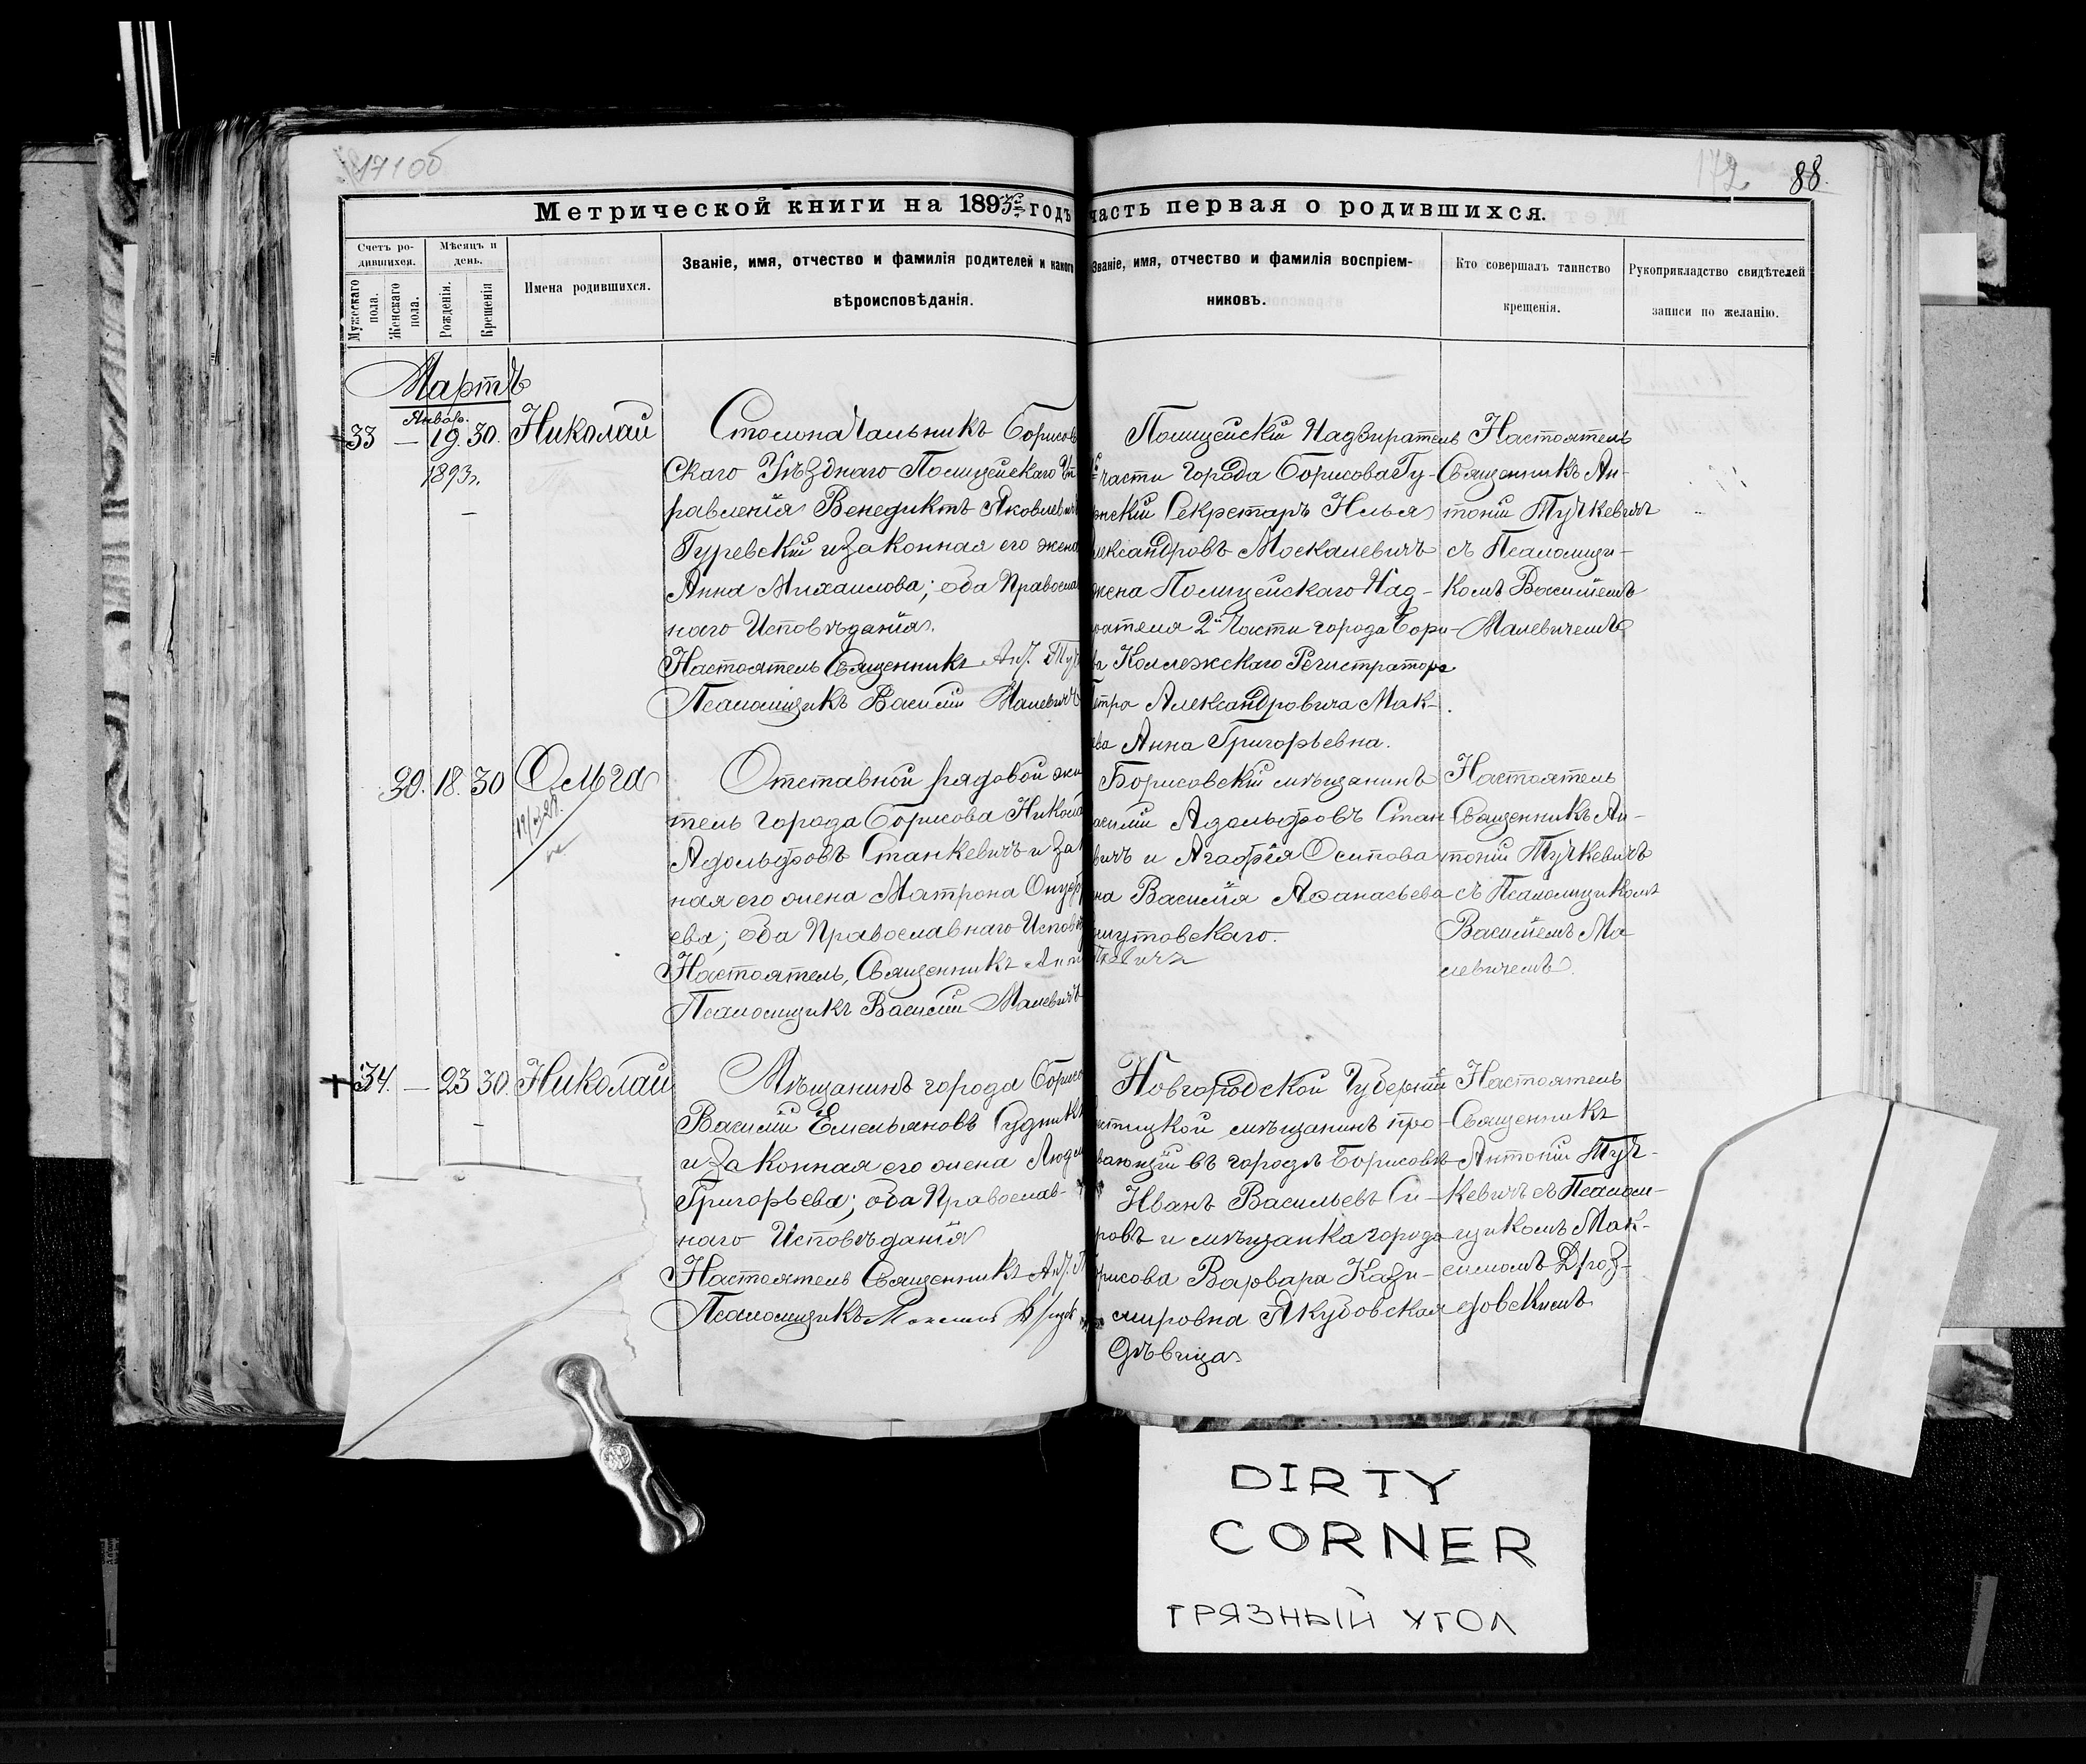 171об
172
88.
Метрической книги на 1893 годъ
часть первая о родившихся.
Счетъ ро-
дившихся.
Мужескаго пола.
Женскаго пола.
Мѣсяцъ и
день.
Рожденія.
Крещенія
Имена родившихся.
Званіе, имя, отчество и фамилія родителей и какого
вѣроисповѣданія.
Званіе, имя, отчество и фамилія воспріем-
никовъ.
Кто совершалъ таинство
крещенія.
Рукоприкладство свидѣтелей
записи по желанію.
Мартъ
Январ.
33 — 19. 30. Николай
1893 г.
Столоначальникъ Борисов
скаго Уѣзднаго Полицейскаго Уп
равленія Венедиктъ Яковлевичъ
Гуревскій и законная его жена
Анна Михаилова; оба Православ
наго Исповѣданія.
Настоятель Священникъ Ант. Туч
Псаломщикъ Василій Малевичъ
Полицейскій Надзиратель
части города Борисова Гу-
рнскій Секретарь Илья
лександровъ Москалевичъ
жена Полицейскаго Над-
рателя 2й Части города Бори-
ва Коллежскаго Регистратора
етра Александровича Мак-
ева Анна Григорьевна.
Настоятель
Священникъ Ан-
тоній Тучкевичъ
съ Псаломщи-
комъ Василіемъ
Малевичемъ
30. 18. 30 Ольга
Отставной рядовой жи
тель города Борисова Никола
Адольфовъ Станкевичъ и зак
ная его жена Матрона Онуф
ева; оба Православнаго Исповѣ
Настоятель, Священникъ Анто
Псаломщикъ Василій Малевичъ
Борисовскій мѣщанинъ
асилій Адольфовъ Стан
вичъ и Агафія Осипова
на Василія Афанасьева
мутовскаго.
чкевичъ
Настоятель
Священникъ Ан-
тоній Тучкевичъ
съ Псаломщикомъ
Василіемъ Ма
левичемъ.
34. — 23 30. Николай
Мѣщанинъ города Борисо
Василій Емельяновъ Судникъ
и законная его жена Людм
Григорьева; оба Православ-
наго Исповѣданія
Настоятель Священникъ Ант. Т
Псаломщикъ Максимъ Дрозд
Новгородской Губерніи
стицкой мѣщанинъ про-
вающій въ городѣ Борисовѣ
Иванъ Васильевъ Си-
ровъ и мѣщанка города
рисова Варвара Кази-
мировна Якубовская
дѣвица
Настоятель
Священникъ
Антоній Туч-
кевичъ съ Псалом-
щикомъ Мак-
симомъ Дроз-
довскимъ
DIRTY
CORNER
ГРЯЗНЫЙ УГОЛ